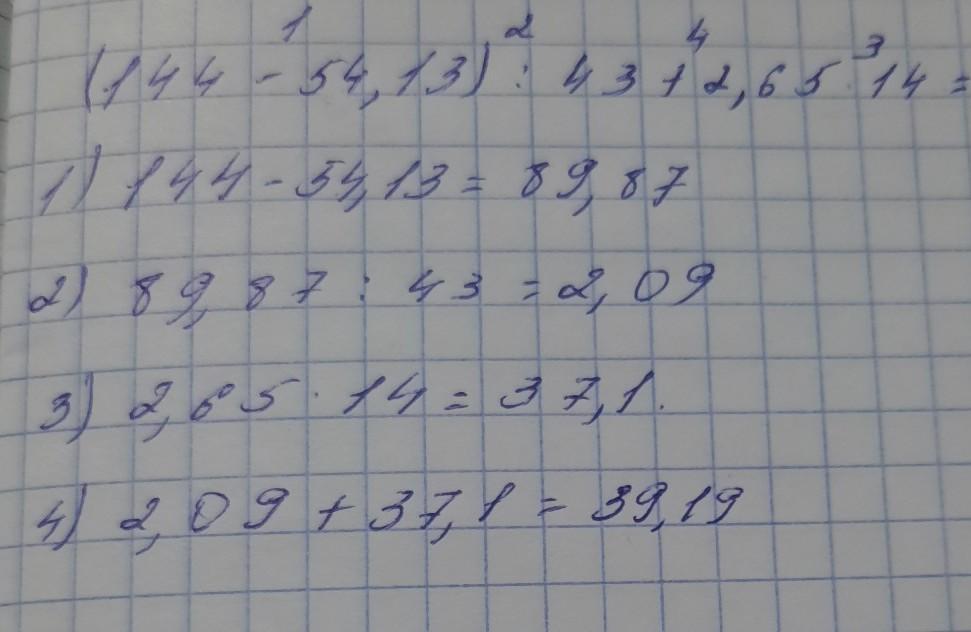 1 2 4 3
(144 - 54,13) : 43 + 2,65 · 14 =
1) 144 - 54,13 = 89,87
2) 89,87 : 43 = 2,09
3) 2,65 · 14 = 37,1.
4) 2,09 + 37,1 = 39,19